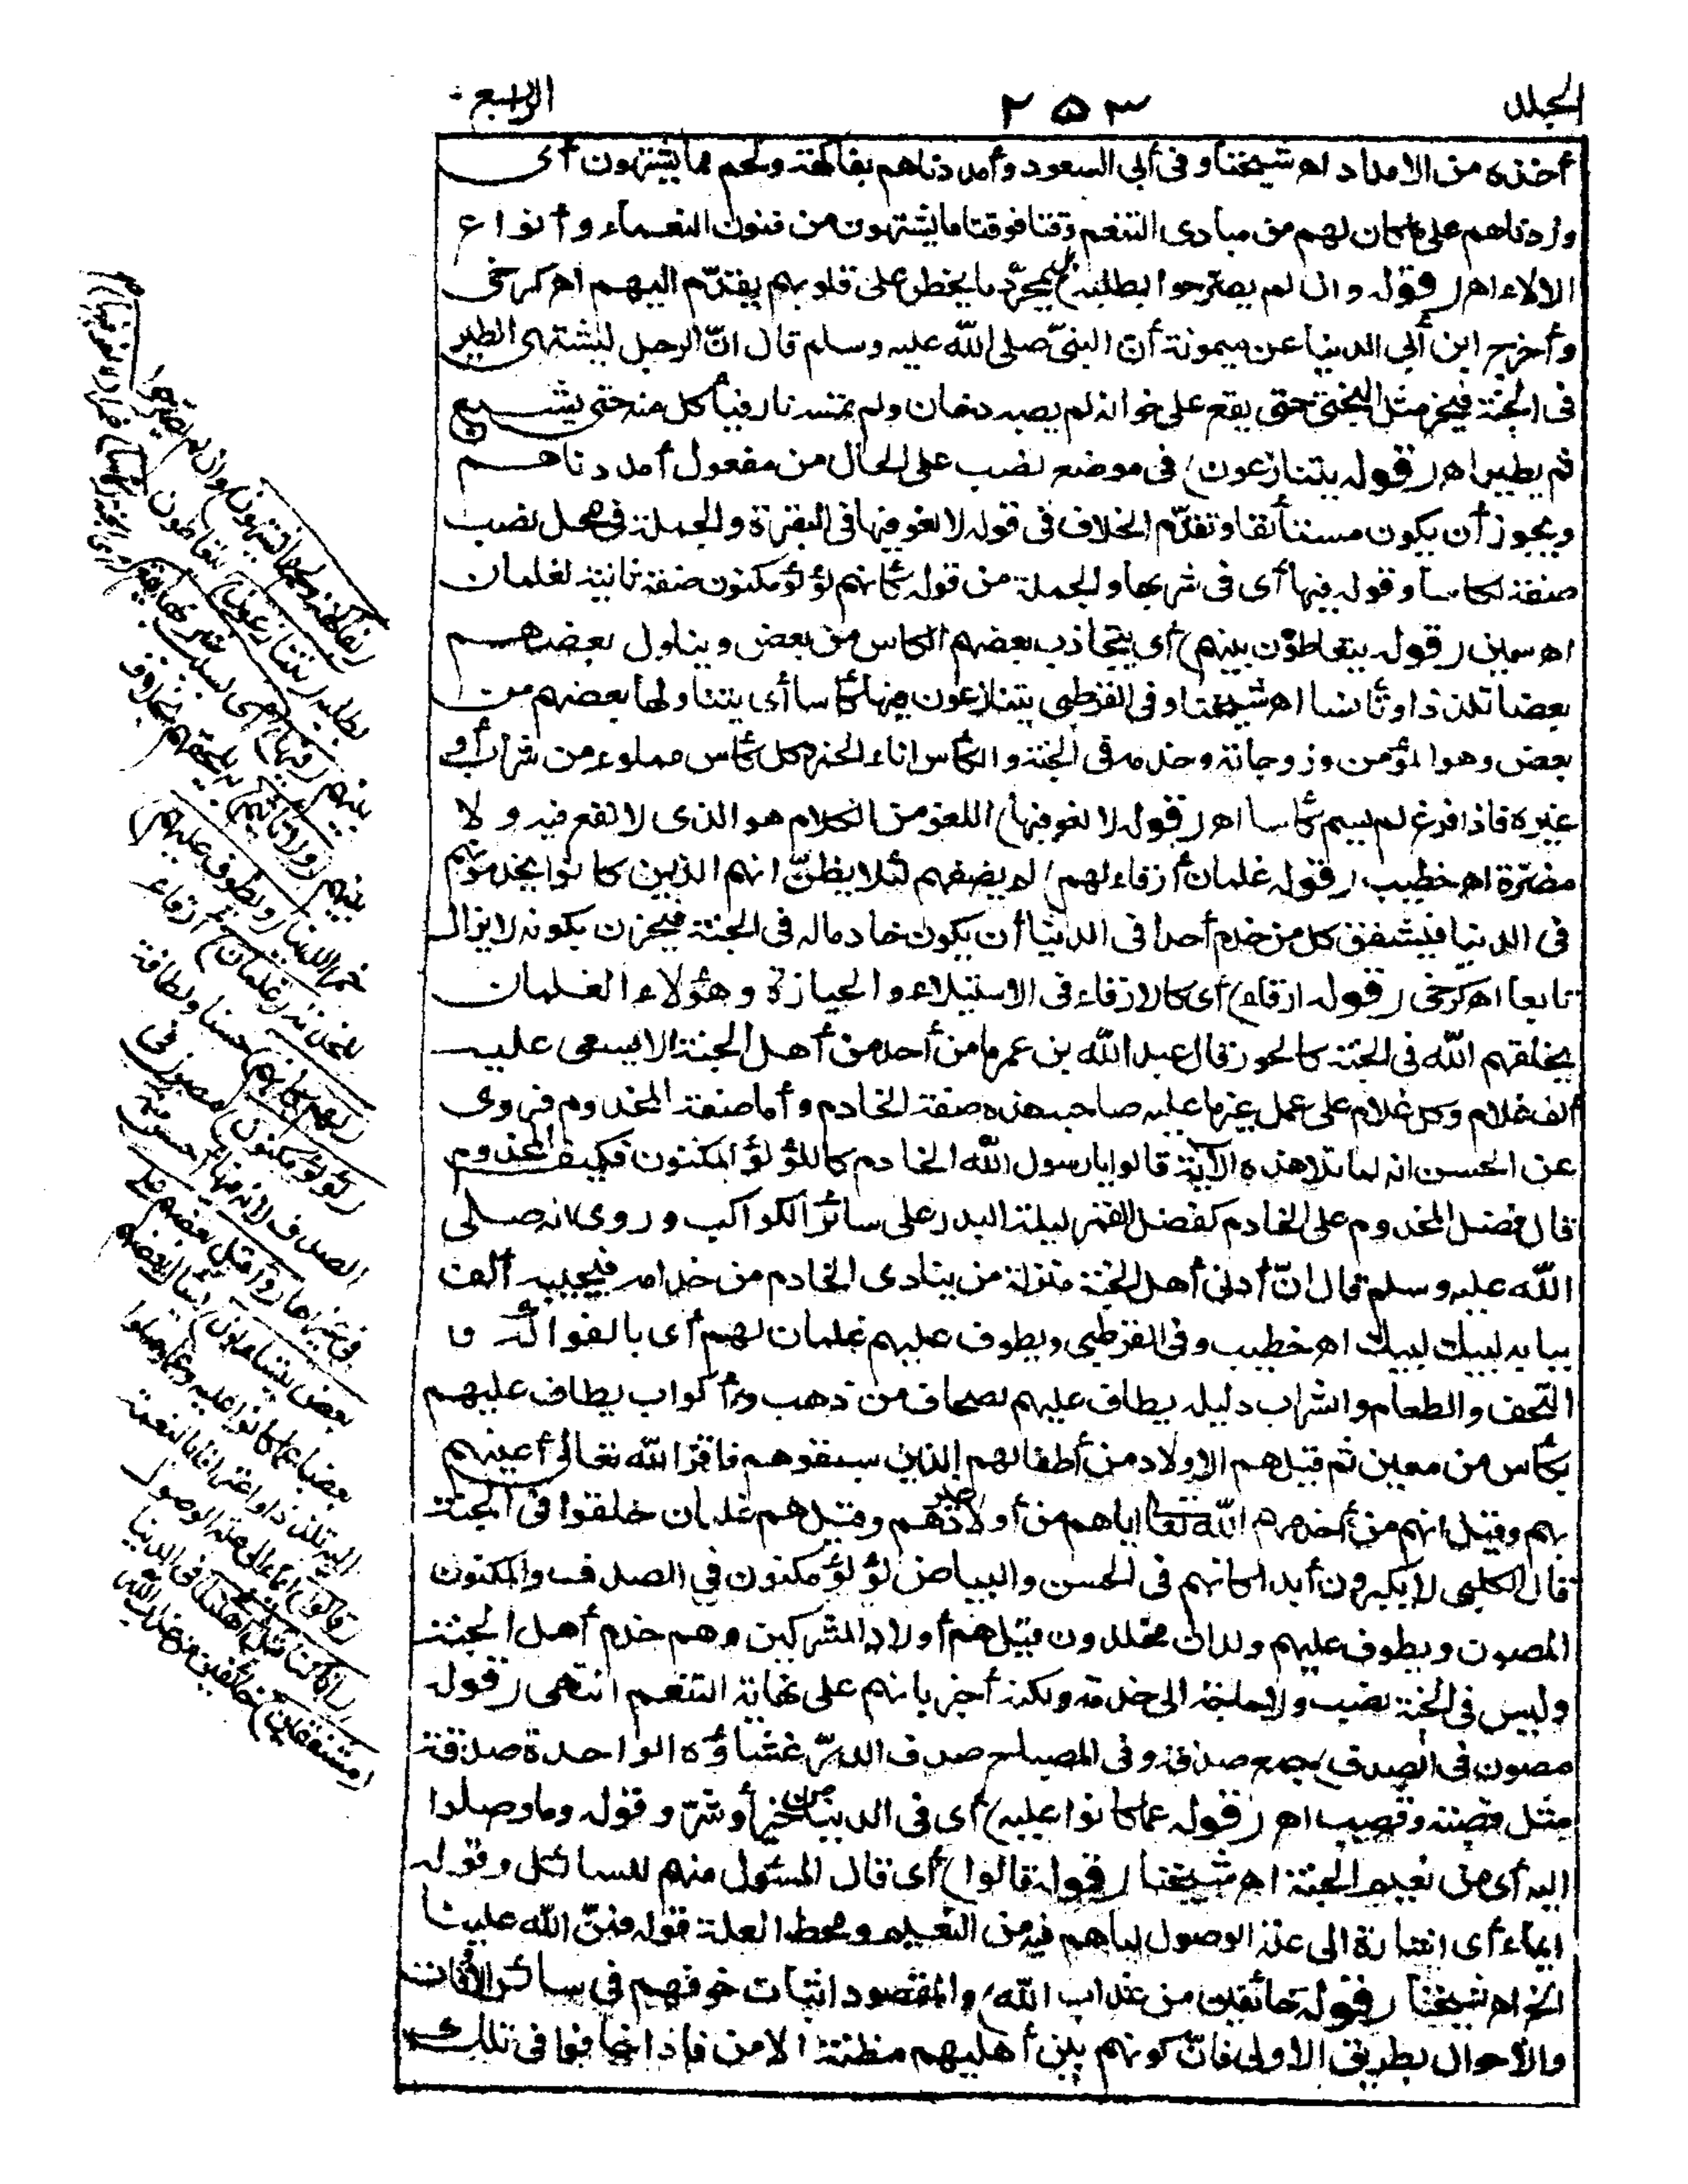 الجلد ٢٥٣ الرابع
أخذه من الامداد اه شيخنا وفى أبى السعود وأمددناهم بفاكهة ولحم مما يشتهون أى
وزدناهم على ما كان لهم من مبادى التنعم وقتا فوقتا ما يشتهون من فنون النعماء وأنواع
الالاء اه (قوله وان لم يصرحوا بطلبه) بل بمجرّد ما يخطر على قلوبهم يقدّم اليهم اه كرخى
وأخرج ابن أبى الدنيا عن ميمونة أن النبىّ صلى الله عليه وسلم قال انّ الرجل ليشتهى الطير
فى الجنة فيخر مثل البختى حتى يقع على خوانه لم يصبه دخان ولم تمسه نار فيأكل منه حتى يشبع
ثم يطير اه (قوله يتنازعون) فى موضع نصب على الحال من مفعول أمددناهم
ويجوز أن يكون مستأنفا وتقدّم الخلاف فى قوله لا لغو فيها فى البقرة والجملة فى محل نصب
صفة لكاسا وقوله فيها أى فى شربها والجملة من قوله كأنهم لؤلؤ مكنون صفة ثانية لغلمان
اه سمين (قوله يتعاطون بينهم) أى يتجاذب بعضهم الكاس من بعض ويناول بعضهم
بعضا تلذذا وتأنسا اه شيخنا وفى القرطبى يتنازعون فيها كأسا أى يتناولها بعضهم من
بعض وهو المؤمن وزوجاته وخدمه فى الجنة والكأس اناء الخمر وكل كأس مملوء من شراب أو
غيره فاذا فرغ لم يسم كأسا اه (قوله لا لغو فيها) اللغو من الكلام هو الذى لا نفع فيه ولا
مضرّة اه خطيب (قوله غلمان أرقاء لهم) لم يضفهم لئلا يظنّ انهم الذين كانوا يخدمونهم
فى الدنيا فيشفق كل من خدم أحدا فى الدنيا أن يكون خادما له فى الجنة فيحزن بكونه لا يزال
تابعا اه كرخى (قوله ارقاء) أى كالارقاء فى الاستيلاء والحيازة وهؤلاء الغلمان
يخلقهم الله فى الجنة كالحور قال عبد الله بن عمر ما من أحد من أهل الجنة الا يسعى عليه
ألف غلام وكل غلام على عمل غير ما عليه صاحبه هذه صفة الخادم وأما صفة المخدوم فروى
عن الحسن انه لما تلا هذه الآية قالوا يا رسول الله الخادم كاللؤلؤ المكنون فكيف المخدوم
قال فضل المخدوم على الخادم كفضل القمر ليلة البدر على سائر الكواكب وروى انه صلى
الله عليه وسلم قال انّ أدنى أهل الجنة منزلة من ينادى الخادم من خدامه فيجيبه ألف
ببابه لبيك لبيك اه خطيب وفى القرطبى ويطوف عليهم غلمان لهم أى بالفواكه و
التحف والطعام والشراب دليله يطاف عليهم بصحاف من ذهب وأكواب يطاف عليهم
بكأس من معين ثم قيل هم الاولاد من أطفالهم الذين سبقوهم فاقرّ الله تعالى أعينهم
بهم وقيل انهم من أخدمهم الله تعالى اياهم من أولاد غيرهم وقيل هم غلمان خلقوا فى الجنة
قال الكلبى لا يكبرون أبدا كأنهم فى الحسن والبياض لؤلؤ مكنون فى الصدف والمكنون
المصون ويطوف عليهم ولدان مخلدون قيل هم أولاد المشركين وهم خدم أهل الجنة
وليس فى الجنة نصب ولا حاجة الى خدمة ولكنه أخبر بانهم على نهاية التنعم انتهى (قوله
مصون فى الصدف) جمع صدفة وفى المصباح صدف الدرّ غشاؤه الواحدة صدفة
مثل قصبة وقصب اه (قوله عما كانوا عليه) أى فى الدنيا من خير أو شرّ وقوله وما وصلوا
اليه أى من نعيم الجنة اه شيخنا (قوله قالوا) أى قال المسؤل منهم للسائل وقوله
ايماء أى اشارة الى علة الوصول لما هم فيه من النعيم ومحط العلة قوله فمنّ الله علينا
الخ اه شيخنا (قوله خائفين من عذاب الله) والمقصود اثبات خوفهم فى سائر الاوقات
والأحوال بطريق الاولى فانّ كونهم بين أهليهم مظنة الامن فاذا خافوا فى تلك
(بفاكهة ولحم مما يشتهون) وان لم يصرحوا
بطلبه (يتنازعون) يتعاطون
بينهم (فيها) أى
بينهم (ولا تأثيم) به يلحقهم بخلاف
خمر الدنيا (ويطوف عليهم)
للخدمة (غلمان) أرقاء
(لهم كأنهم) حسنا ولطافة
(لؤلؤ مكنون) مصون فى
الصدف لانه فيها أحسن منه
فى غيرها (وأقبل بعضهم على
بعض يتساءلون) يسأل بعضهم
بعضا عما كانوا عليه وما وصلوا
اليه تلذذا واعترافا بالنعمة
(قالوا) ايماء الى علة الوصول
(انا كنا قبل فى أهلنا) فى الدنيا
(مشفقين) خائفين من عذاب الله